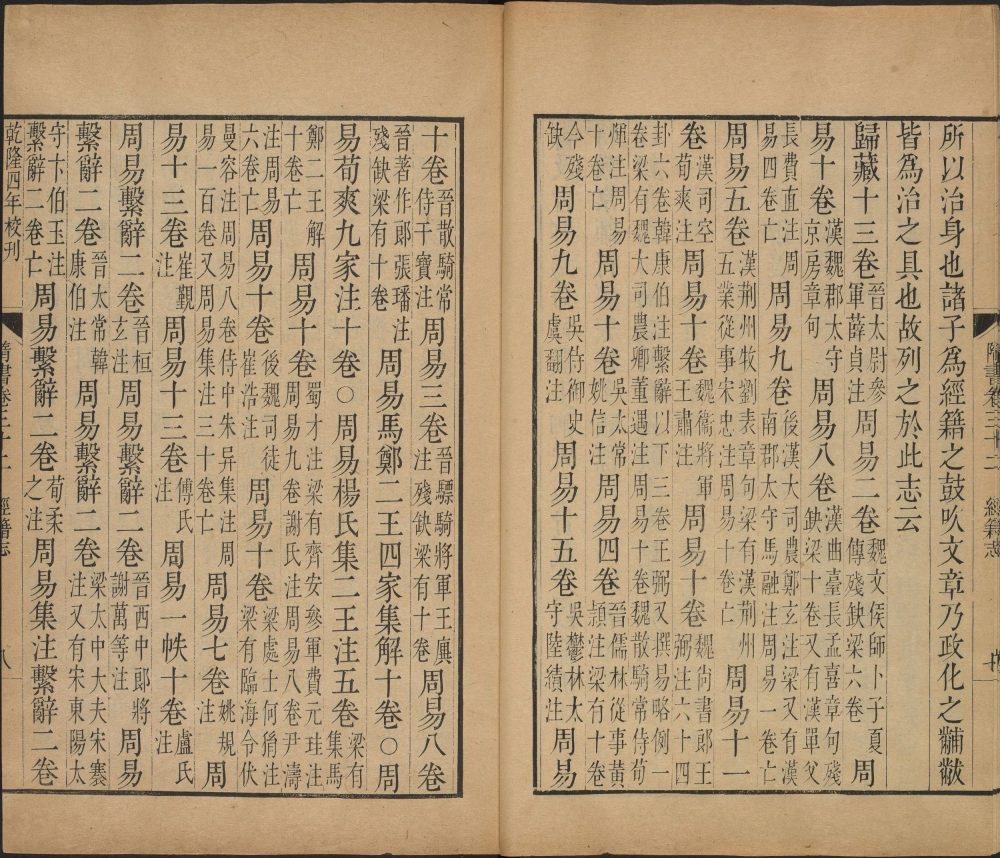 隋書卷三十二 經籍志
所以治身也諸子爲經籍之鼓吹文章乃政化之黼黻
皆爲治之具也故列之於此志云
歸藏十三卷晉太尉參軍薛貞注周易二卷魏文侯師卜子夏傳殘缺梁六卷周
易十卷漢魏郡太守京房章句周易八卷漢曲臺長孟喜章句殘缺梁十卷又有漢單父
長費直注周易四卷亡周易九卷後漢大司農鄭玄注梁又有漢南郡太守馬融注周易一卷亡
周易五卷漢荆州牧劉表章句梁有漢荆州五業從事宋忠注周易十卷亡周易十一
卷漢司空荀爽注周易十卷魏衞將軍王肅注周易十卷魏尚書郎王弼注六十四
卦六卷韓康伯注繫辭以下三卷王弼又撰易略例一卷梁有魏大司農卿董遇注周易十卷魏散騎常侍荀
煇注周易十卷亡周易十卷吳太常姚信注周易四卷晉儒林從事黃穎注梁有十卷
今殘缺周易九卷吳侍御史虞翻注周易十五卷吳鬱林太守陸績注周易
十卷晉散騎常侍干寶注周易三卷晉驃騎將軍王廙注殘缺梁有十卷周易八卷
晉著作郎張璠注殘缺梁有十卷周易馬鄭二王四家集解十卷○周
易荀爽九家注十卷○周易楊氏集二王注五卷梁有集馬
鄭二王解十卷亡周易十卷蜀才注梁有齊安參軍費元珪注周易九卷謝氏注周易八卷尹濤
注周易六卷亡周易十卷後魏司徒崔浩注周易十卷梁處士何胤注梁有臨海令伏
曼容注周易八卷侍中朱异集注周易一百卷又周易集注三十卷亡周易七卷姚規注周
易十三卷崔覲注周易十三卷傅氏注周易一帙十卷盧氏注
周易繫辭二卷晉桓玄注周易繫辭二卷晉西中郎將謝萬等注周易
繫辭二卷晉太常韓康伯注周易繫辭二卷梁太中大夫宋褰注又有宋東陽太
守卞伯玉注繫辭二卷亡周易繫辭二卷荀柔之注周易集注繫辭二卷
乾隆四年校刊
隋書卷三十二 經籍志 八